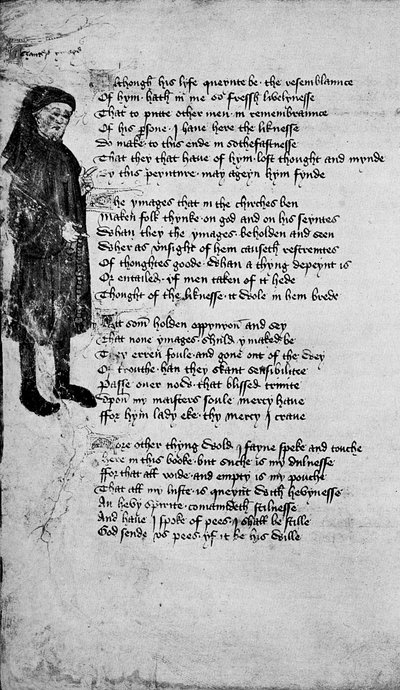 Although his lyfe queynte be the resemblaunce
Of hym hath in me so fressh lyvelynesse
That to putte other men in remembraunce
Of his psone I have here the liknesse
Do make to this ende in sothefastnesse
That they that have of hym lost thought and mynde
By this peynture may ageyn hym fynde
The ymages that in the chirches ben
Maken folk thynke on god and on his seyntes
Whan they the ymages beholden and seen
Wher as unsight of hem causeth restreintes
Of thoughtes goode whan a thyng depeynt is
Or entailed yf men taken of it hede
Thought of the liknesse it wole in hem brede
Yit som holden oppynyon and sey
That none ymages shuld ymaked be
They erren foule and gone out of the wey
Of trouthe han they skant sensibilitee
Passe over now that blissed trinite
Upon my maisters soule mercy have
ffor hym lady eke thy mercy I crave
More other thyng wold I fayne speke and touche
Here in this booke but suche is my dulnesse
ffor that all voide and empty is my pouche
That all my luste is queynt with hevynesse
An hevy spirite comaundeth stilnesse
And have I spoke of pees I shall be stille
God sende us pees yf it be his wille